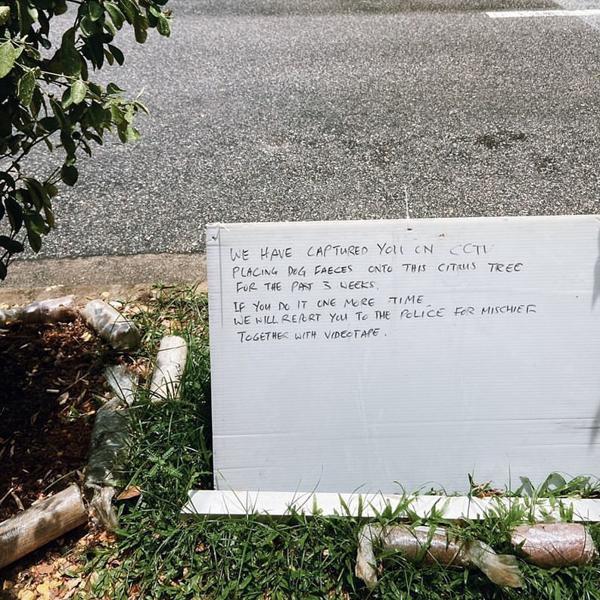 WE HAVE CAPTURED YOU ON CCTV
PLACING DOG FAECES ONTO THIS CITRUS TREE
FOR THE PAST 3 WEEKS.
IF YOU DO IT ONE MORE TIME
WE WILL REPORT YOU TO THE POLICE FOR MISCHIEF
TOGETHER WITH VIDEOTAPE.